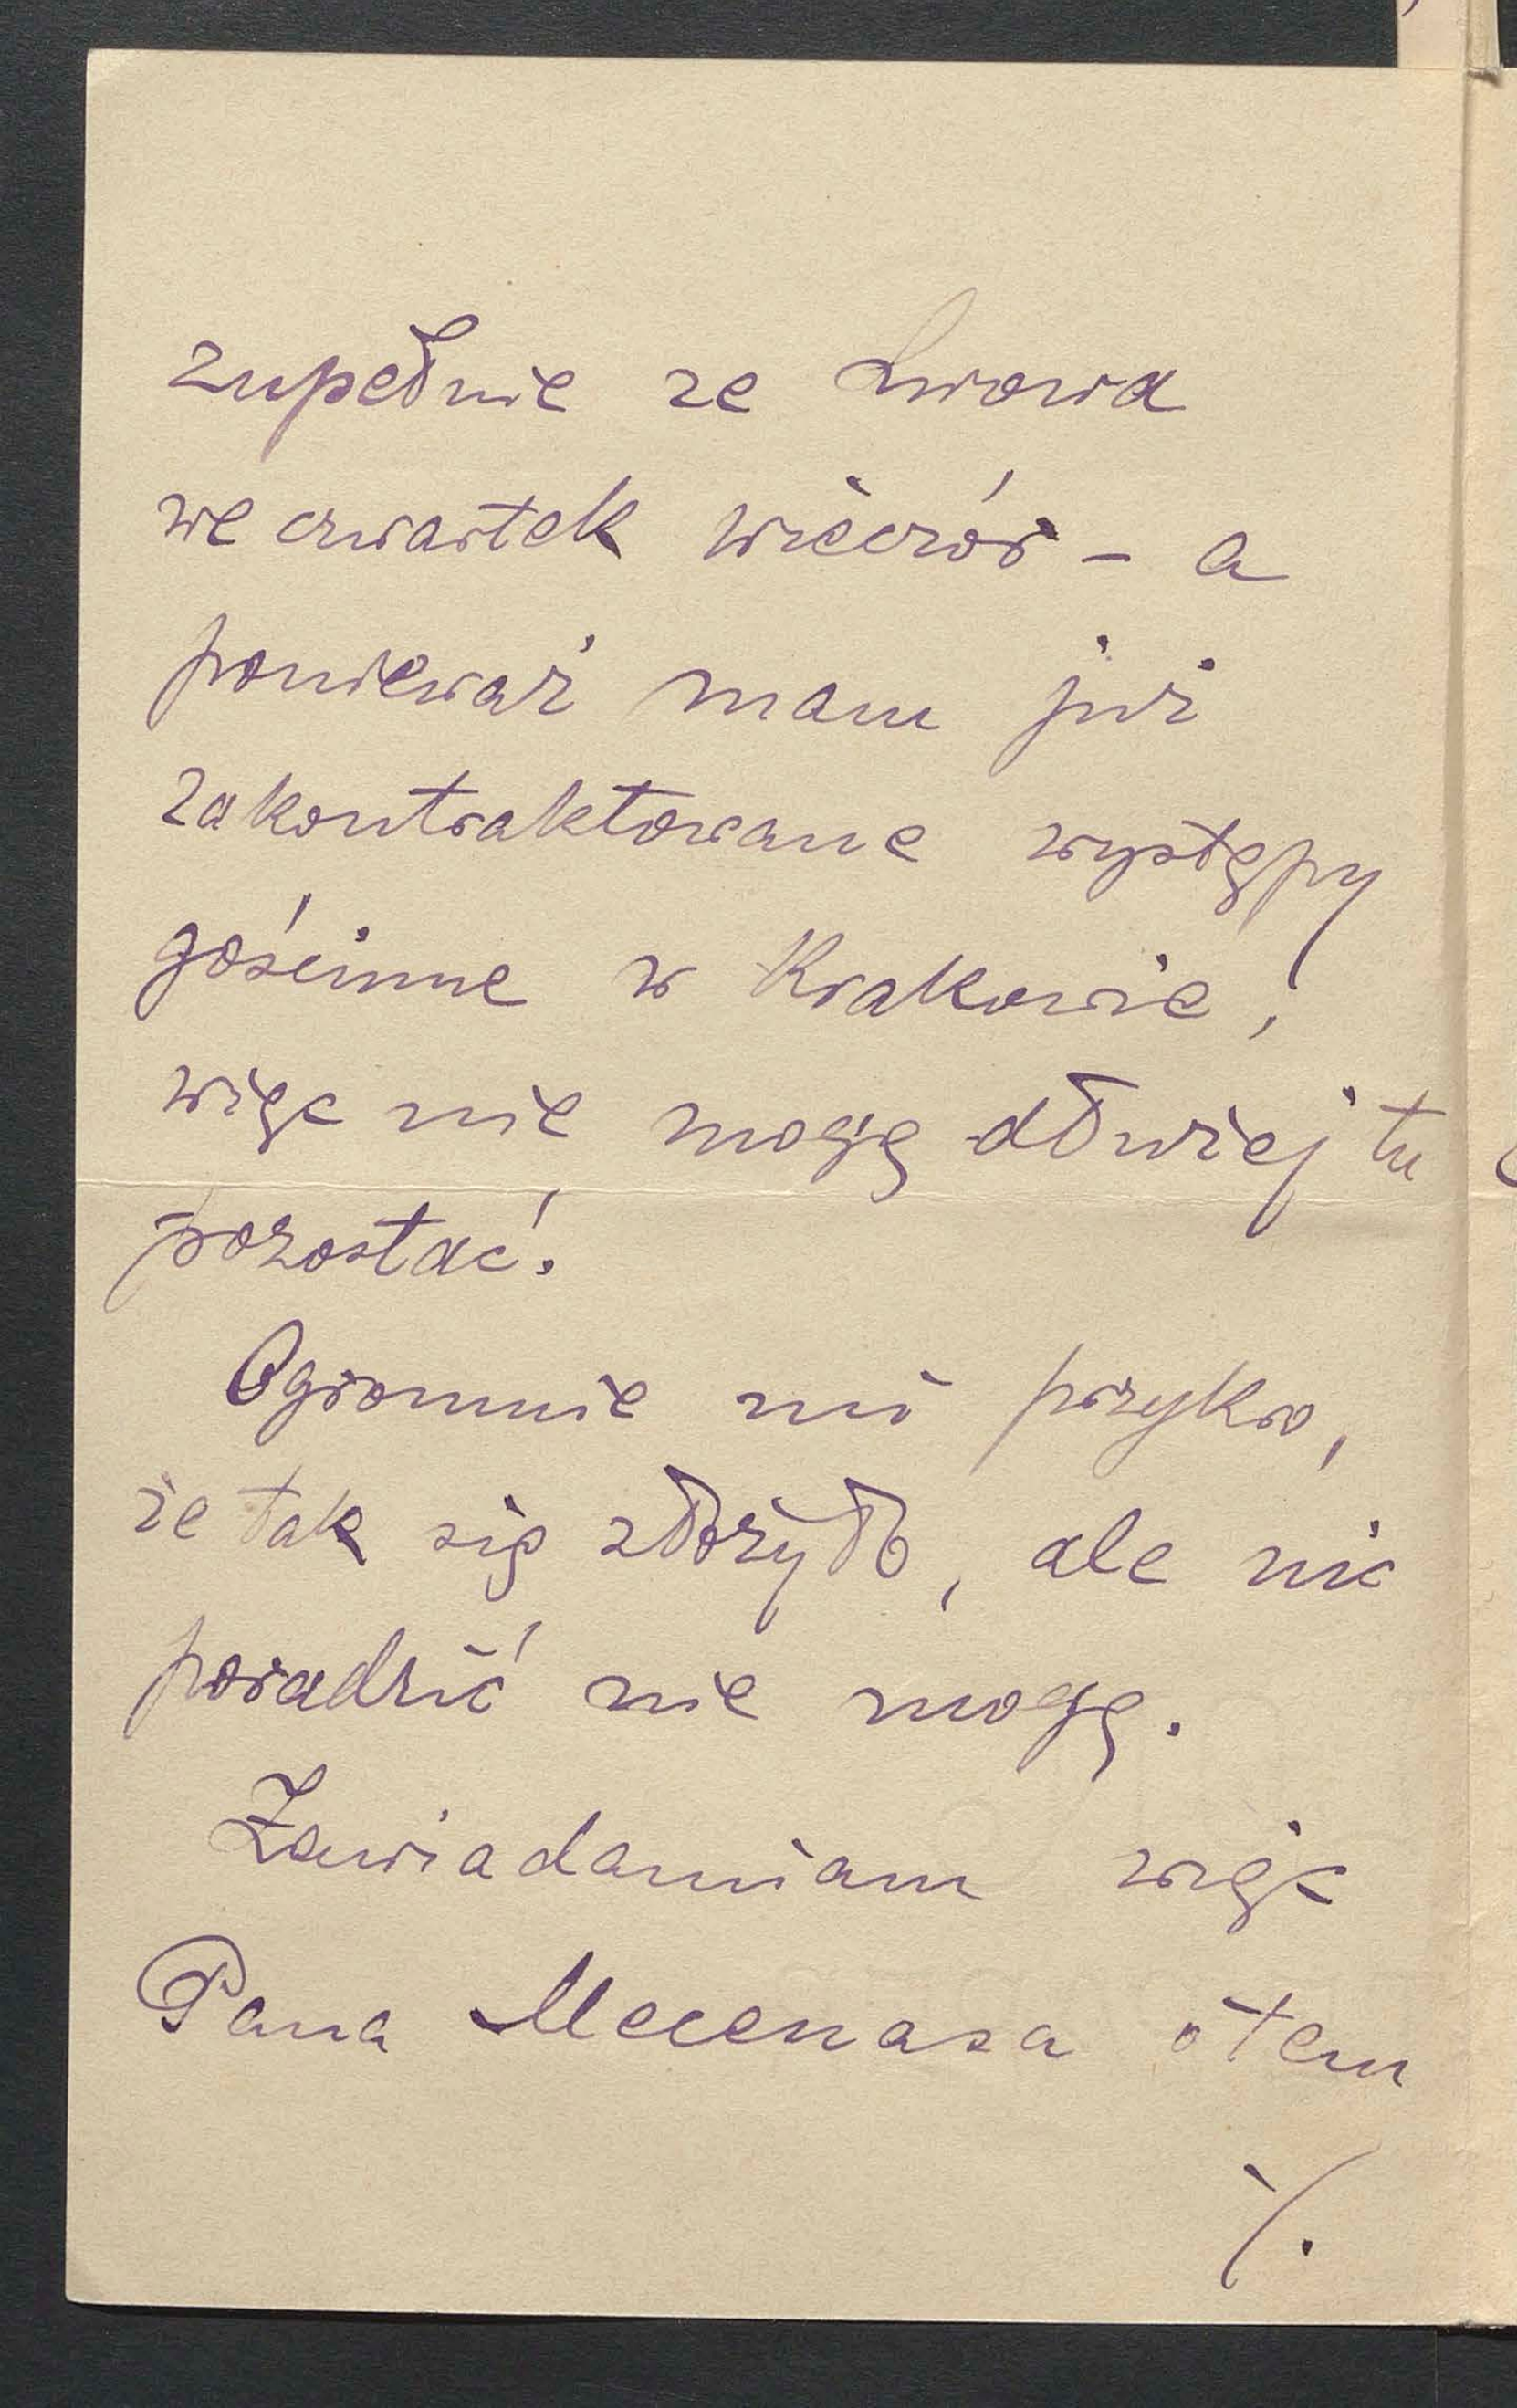 zupełnie ze Lwowa
we czwartek wieczór – a
ponieważ mam już
zakontraktowane występy
gościnne w Krakowie,
więc nie mogę dłużej tu
pozostać.
Ogromnie mi przykro,
że tak się złożyło, ale nic
poradzić nie mogę.
Zawiadamiam więc
Pana Mecenasa o tem
./.